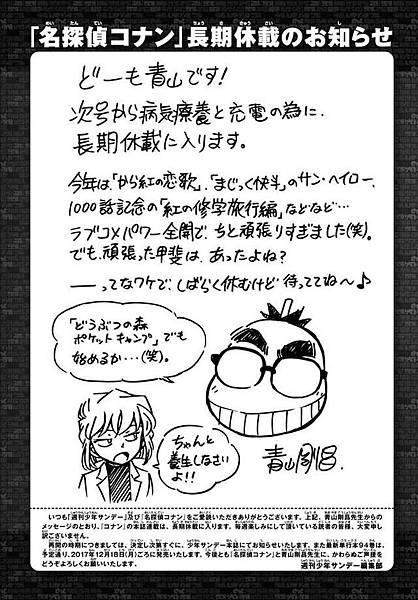 「名探偵コナン」長期休載のお知らせ
どーも青山です!
次号から病気療養と充電の為に、
長期休載に入ります。
今年は、「から紅の恋歌」、「まじっく快斗」のサン・ヘイロー、
1000話記念の「紅の修学旅行編」などなど…
ラブコメパワー全開で、ちと頑張りすぎました(笑)。
でも、頑張った甲斐は、あったよね?
――ってなワケで、しばらく休むけど待っててね〜♪
「どうぶつの森
ポケットキャンプ」でも
始めるか…(笑)。
ちゃんと
養生しなさい
よ!!
青山剛昌.
いつも「週刊少年サンデー」及び「名探偵コナン」をご愛読いただきありがとうございます。上記、青山剛昌先生からの
メッセージのとおり、『コナン』の本誌連載は、長期休載に入ります。毎週楽しみにして頂いている読者の皆様、大変申し
訳ございません。
再開の時期につきましては、決定し次第すぐに、少年サンデー本誌にてお知らせいたします。また最新単行本94巻は、
予定通り、2017年12月18日(月)ごろに発売いたします。今後とも「名探偵コナン」と青山剛昌先生に、かわらぬご声援を
どうぞよろしくお願いいたします。
週刊少年サンデー編集部